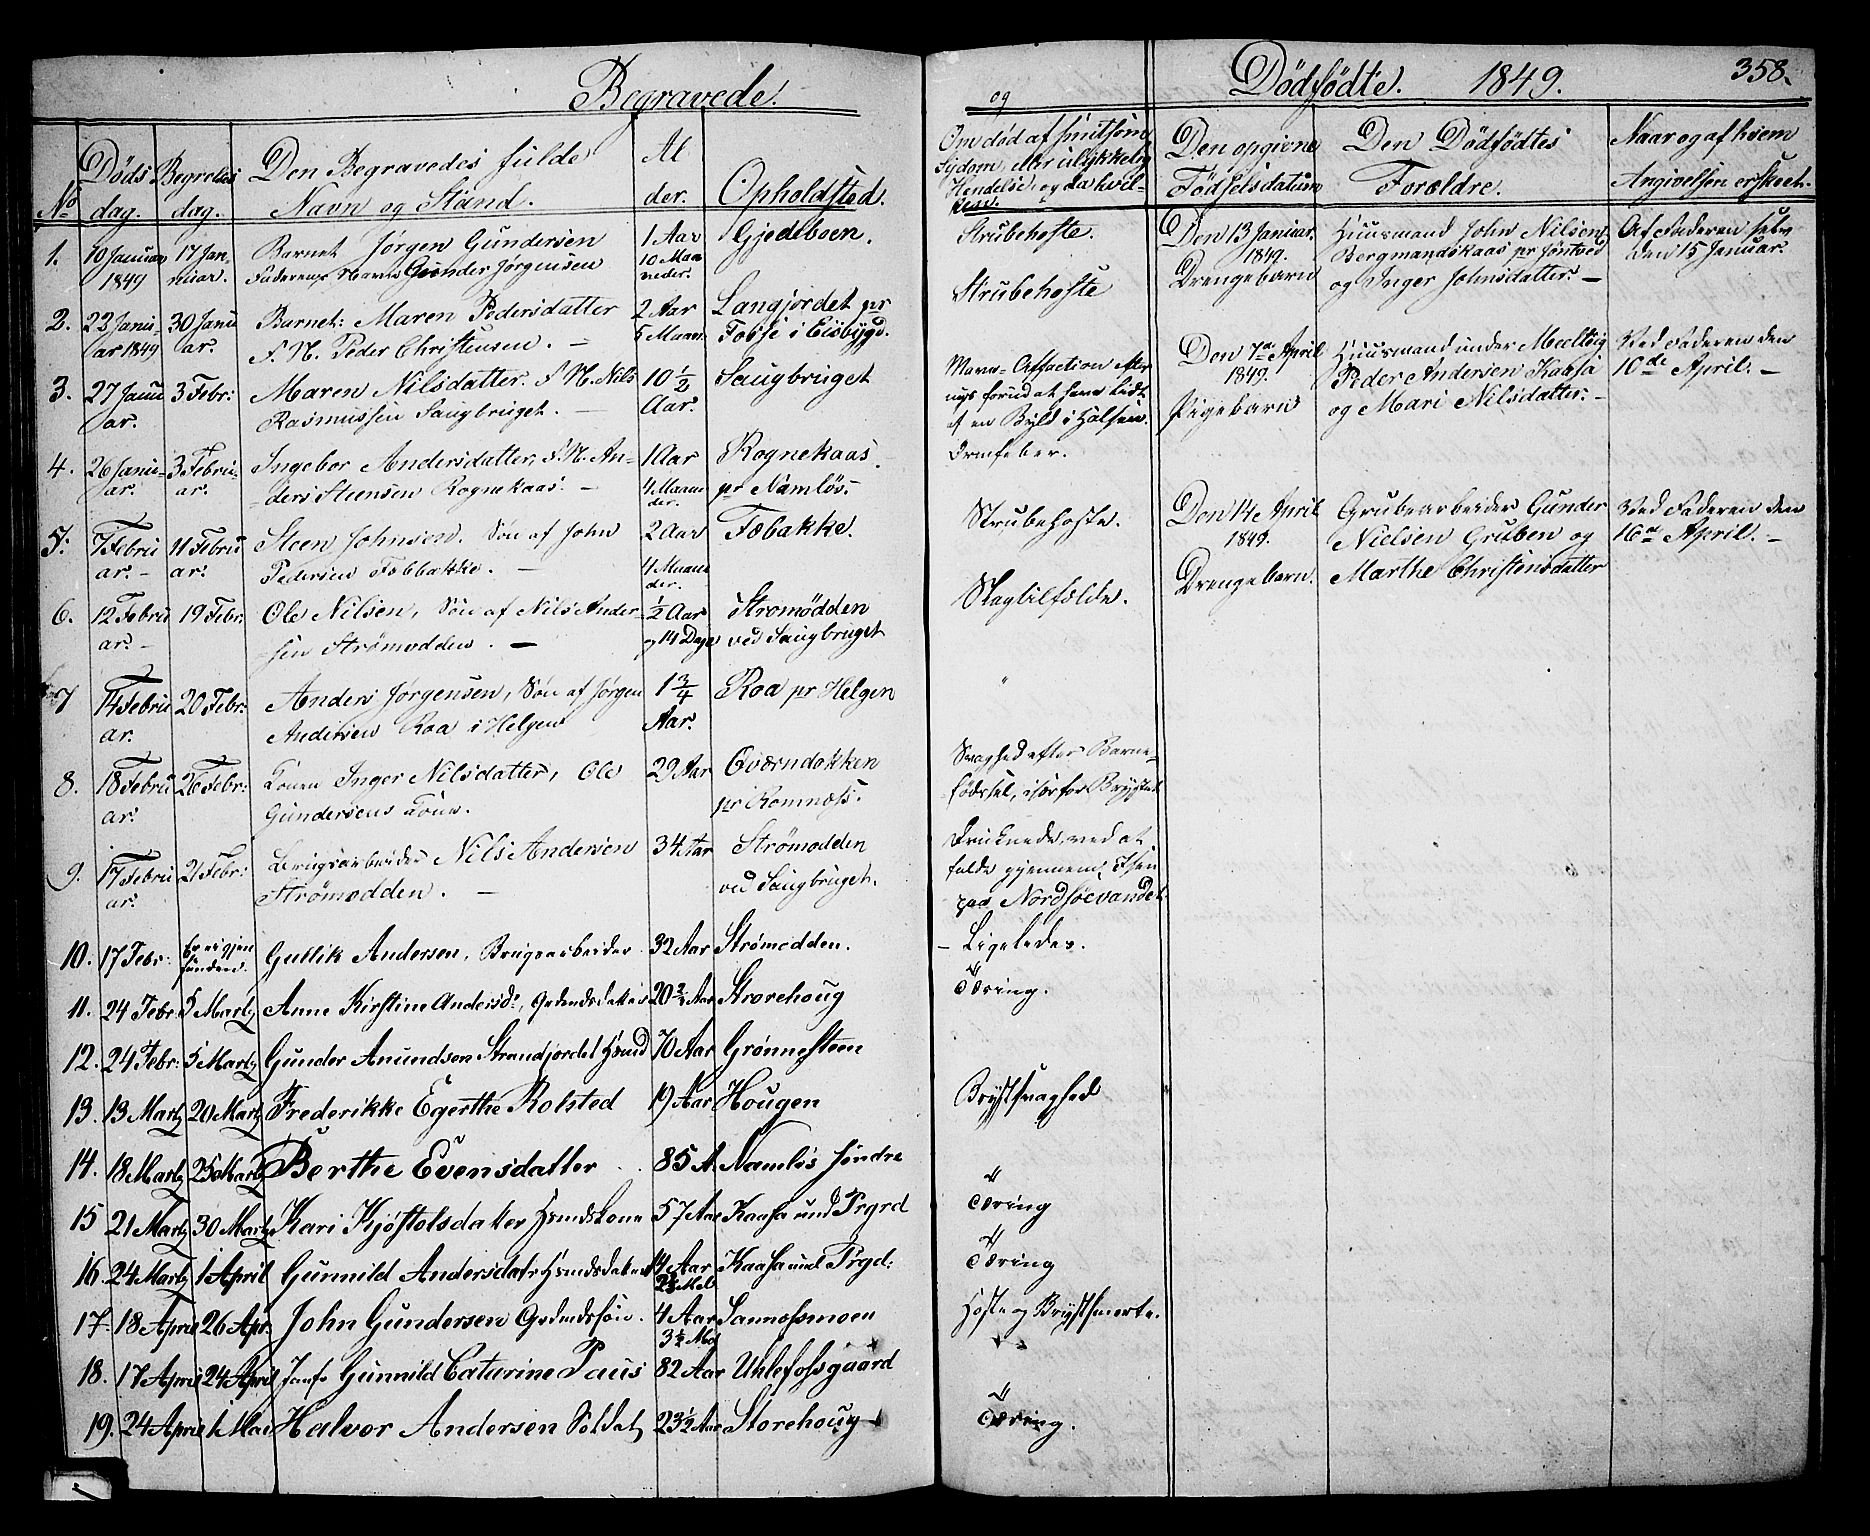 Begravede.
No
Døds dag.
Begravelsesdag.
Den Begravedes fulde Navn og Stand.
Alder.
Opholdsted.
1. 10 Januar 1849 17 Januar. Barnet Jørgen Gundersen 1 Aar 10 Maaneder. Gjedeboen.
Faderens Navn Gunder Jørgensen
2. 22 Januar 1849 30 Januar. Barnet: Maren Pedersdatter 2 Aar 5 Maan. Langjordet pr
F. N. Peder Christensen. — Fosse i Eisbygd.
3. 27 Januar. 3 Febr: Maren Nilsdatter. F. N. Nils 10 1/2 Aar. Saugbruget
Rasmussen Saugbruget. —
4. 26 Januar. 3 Februar. Ingebor Andersdatter, F. N. An- 1 Aar 4 Maaneder. Rognekaas
ders Steensen Rognekaas. — pr Namløs.
5. 7 Februar. — 11 Februar. Steen Johnsen. Søn af John 2 Aar 4 Maaneder. Fæbakke.
Pedersen Febbakke. —
6. 12 Februar. — 19 Febr. Ole Nilsen, Søn af Nils Ander- 1/2 Aar og 14 Dage Strømodden
sen Strømodden. — ved Saugbruget
7 14 Februar. 20 Febr: Anders Jørgensen, Søn af Jørgen 1 3/4 Aar. Roa pr Helgen
Andersen Roa i Helgen
8. 18 Februar. 26 Febr: Konen Inger Nilsdatter, Ole 29 Aar Qværndokken
Gundersens Kone. pr Romnæss.
9. 17 Februar. 21 Febr: Brugsarbeider Nils Andersen 34 Aar Strømodden
Strømodden. — ved Saugbruget.
10. 17 Febr: Er ei igjen funden. Gullik Andersen, Brugsarbeider 32 Aar Strømodden.
11. 24 Febr: 5 Marts Anne Kirstine Andersd:, 20 Aar Storehoug
12. 24 Febr: 5 Marts Gunder Anundsen Strandjordet Hsmd 70 Aar Grønnesteen
13. 13 Marts 20 Marts Frederikke Egerthe Rolsted 19 Aar Hougen
14. 18 Marts 25 Marts Berthe Evensdatter 85 A. Namløs søndre
15 21 Marts 30 Marts Kari Kjøstolsdatter Hsmdskone 57 Aar Kaasa und Prgrd
16. 24 Marts 1 April Gunnild Andersdatr Hsmdsdatter 14 Aar Kaasa und Prgd:
17. 18 April 26 Apr. John Gundersen 4 Aar 3 1/2 Md Sannessmoen
18. 17 April 24 April Jomfr Gunnild Caturine Paus 82 Aar Uhlefossgaard
19. 24 April 1 Mai Halvor Andersen Soldat 23 1/2 Aar Storehoug
og
Dødfødte. 1849. 358.
Om død af smitsom
Sygdom, eller ulykkelig
Hendelse, og da hvil-
ken.
Den opgivne
Fødselsdatum
Den Dødfødtes
Forældre.
Naar og af hvem
Angivelsen er skeet.
Strubehoste.
Strubehoste
Mave-Affection efter
nys forud at have lidt
af en Byld i Halsen.
Ormfeber.
Strubehoste.
Slagtilfælde.
"
Svaghed efter Barne-
fødsel, især for Brystet
Druknede, ved at
falde gjennem Isen
paa Nordsøevandet.
- Ligeledes.
Tæring.
Brystsvaghed
Tæring
Tæring
Hoste og Brystsmerte.
Tæring.
Den 13 Januar.
1849.
Drengebarn
Huusmand John Nilsen
Bergmandskaas pr Jøntved
og Inger Johnsdatter. —
Af Faderen selv
den 15 Januar.
Den 7de April
1849.
Pigebarn
Huusmand under Melteig
Peder Andersen Kaasa
og Mari Nilsdatter. —
Ved Faderen den
10de April. —
Den 14 April
1849.
Drengebarn.
Grubearbeider Gunder
Nielsen Gruben og
Marthe Christensdatter
Ved Faderen den
16de April. —